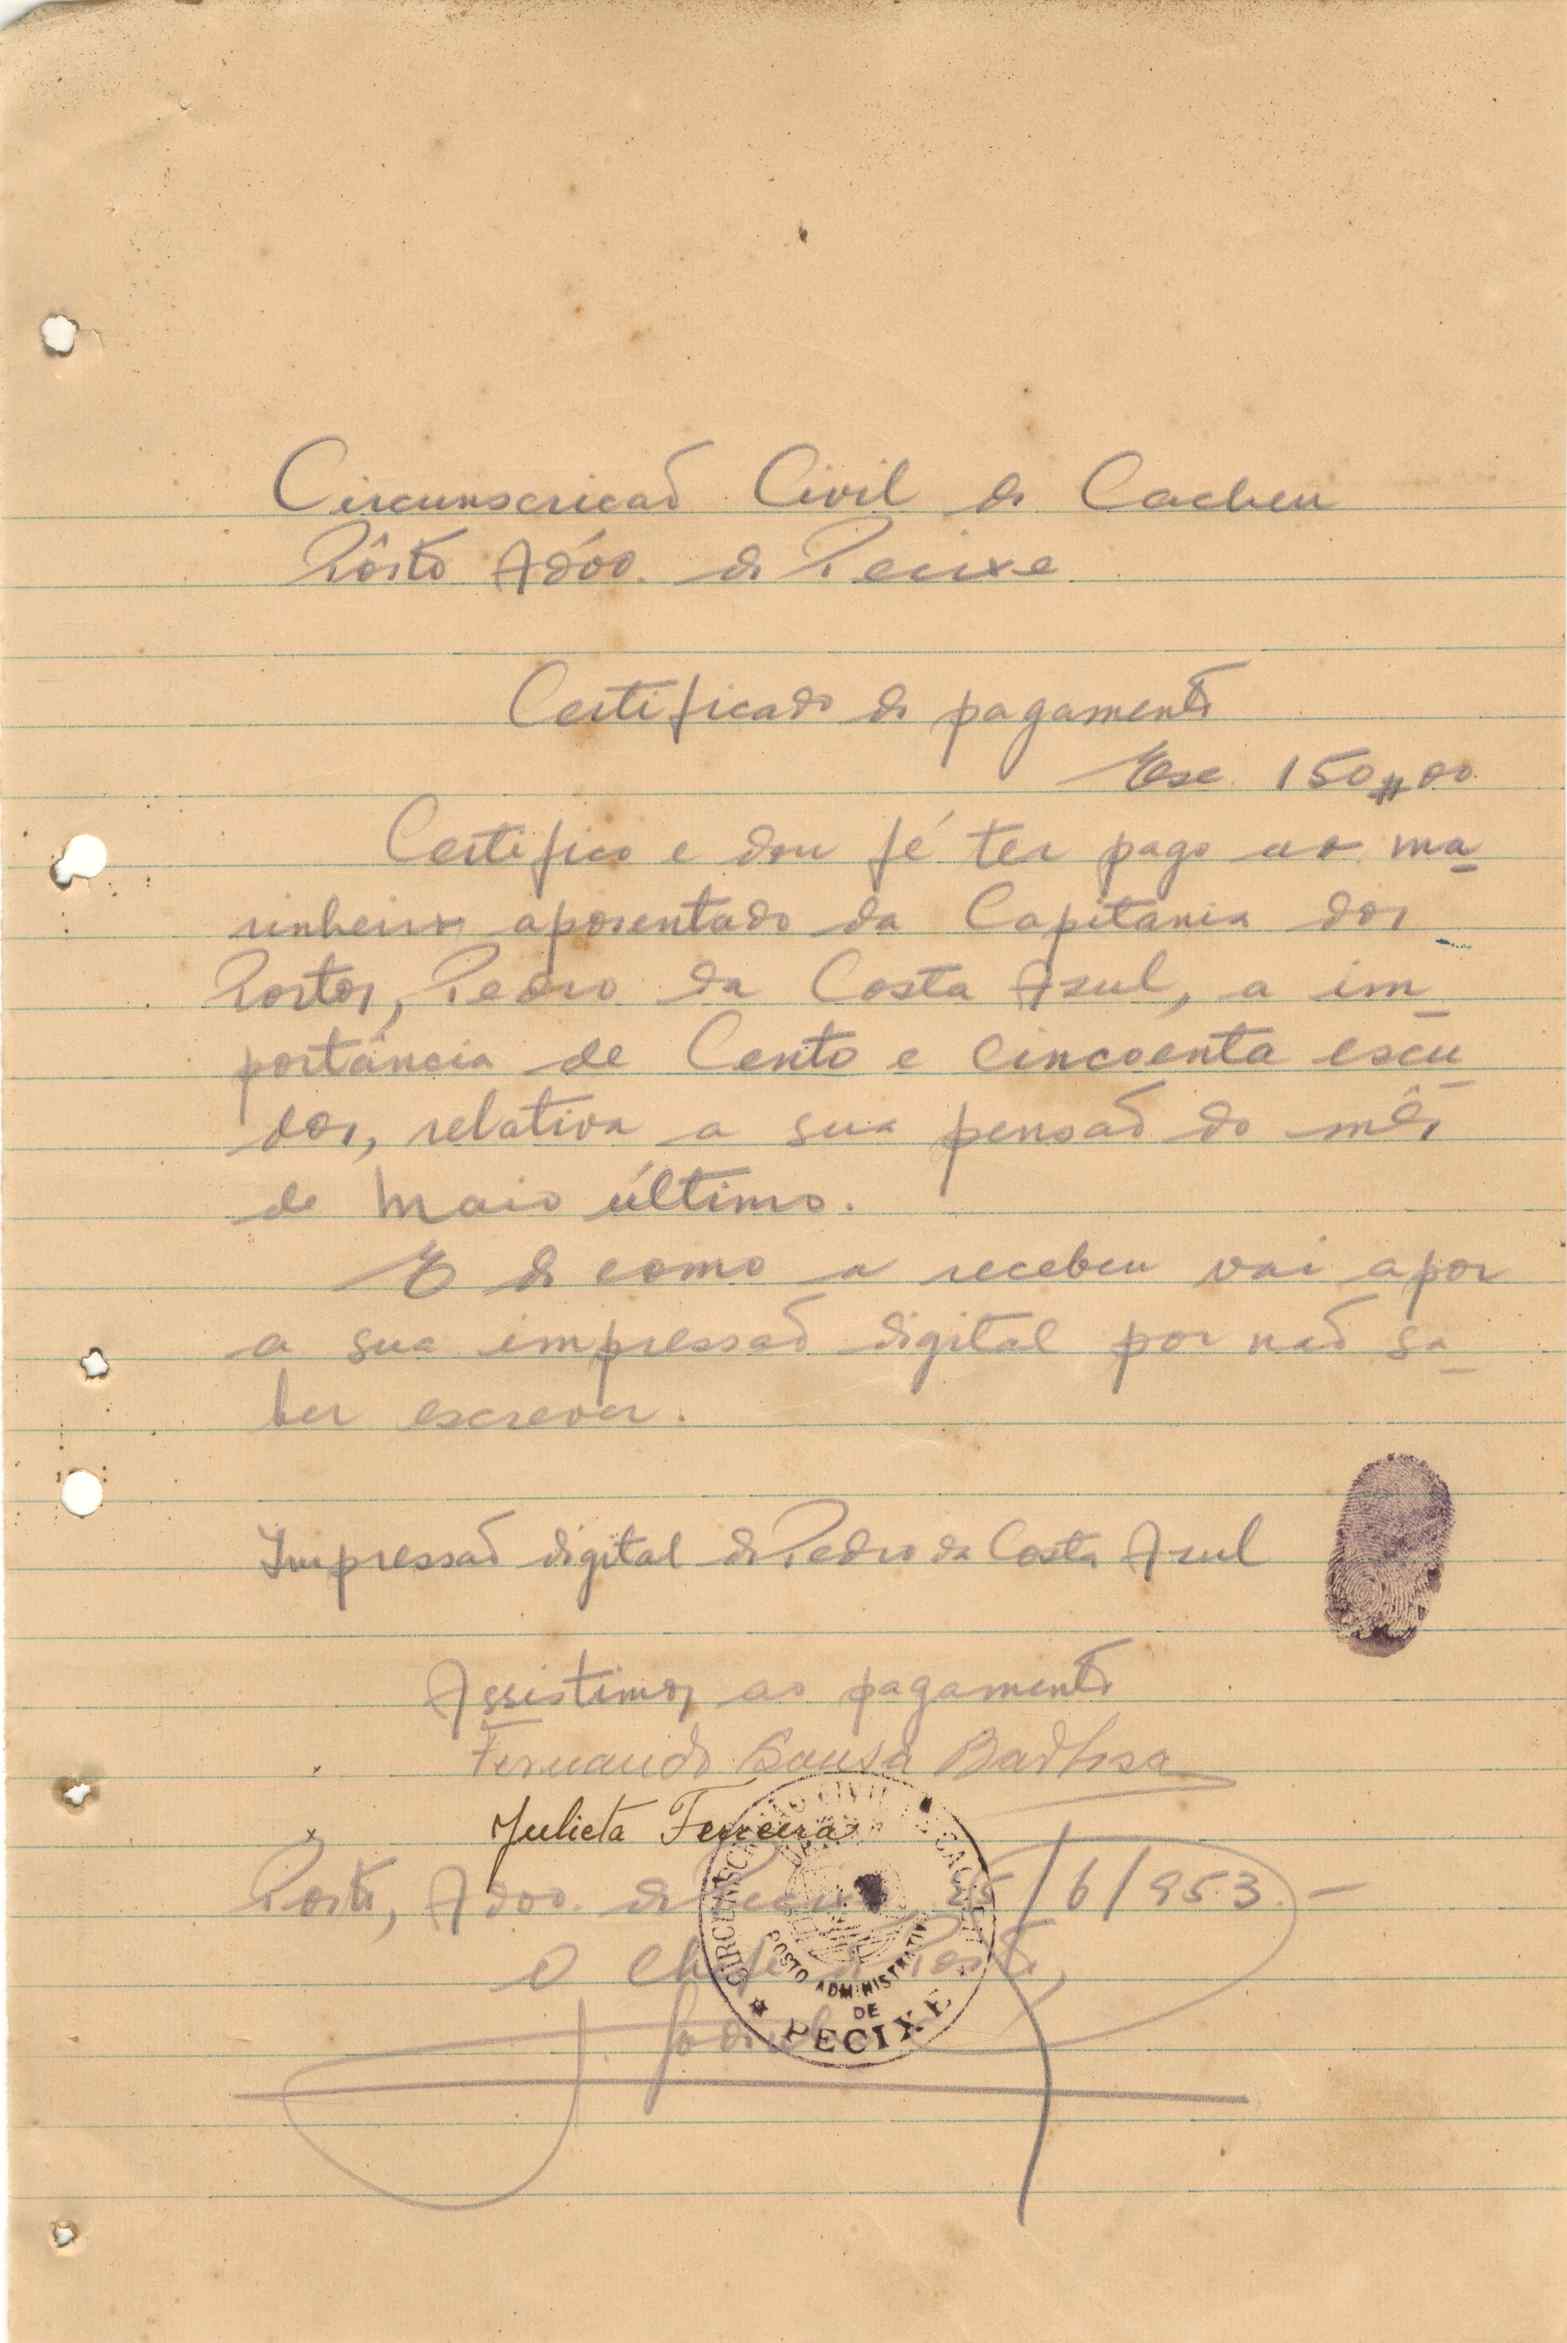 Circunscrição Civil de Cacheu
Pôsto Adóo. de Pecixe
Certificado de pagamento
Esc. 150$00
Certifico e dou fé ter pago ao ma-
rinheiro aposentado da Capitania dos
Portos, Pedro da Costa Azul, a im-
portância de Cento e cincoenta escu-
dos, relativa a sua pensão do mês
de Maio último.
E de como a recebeu vai apor
a sua impressão digital por não sa-
ber escrever.
Impressão digital de Pedro da Costa Azul
Assistimos ao pagamento
Fernando Sousa Barbosa
Julieta Ferreira
Posto, Adoo. de Pecixe, 25/6/953.-
O Chefe de Posto,
CIRCUNSCRIÇÃO CIVIL DE CACHEU
POSTO ADMINISTRATIVO
DE
PECIXE